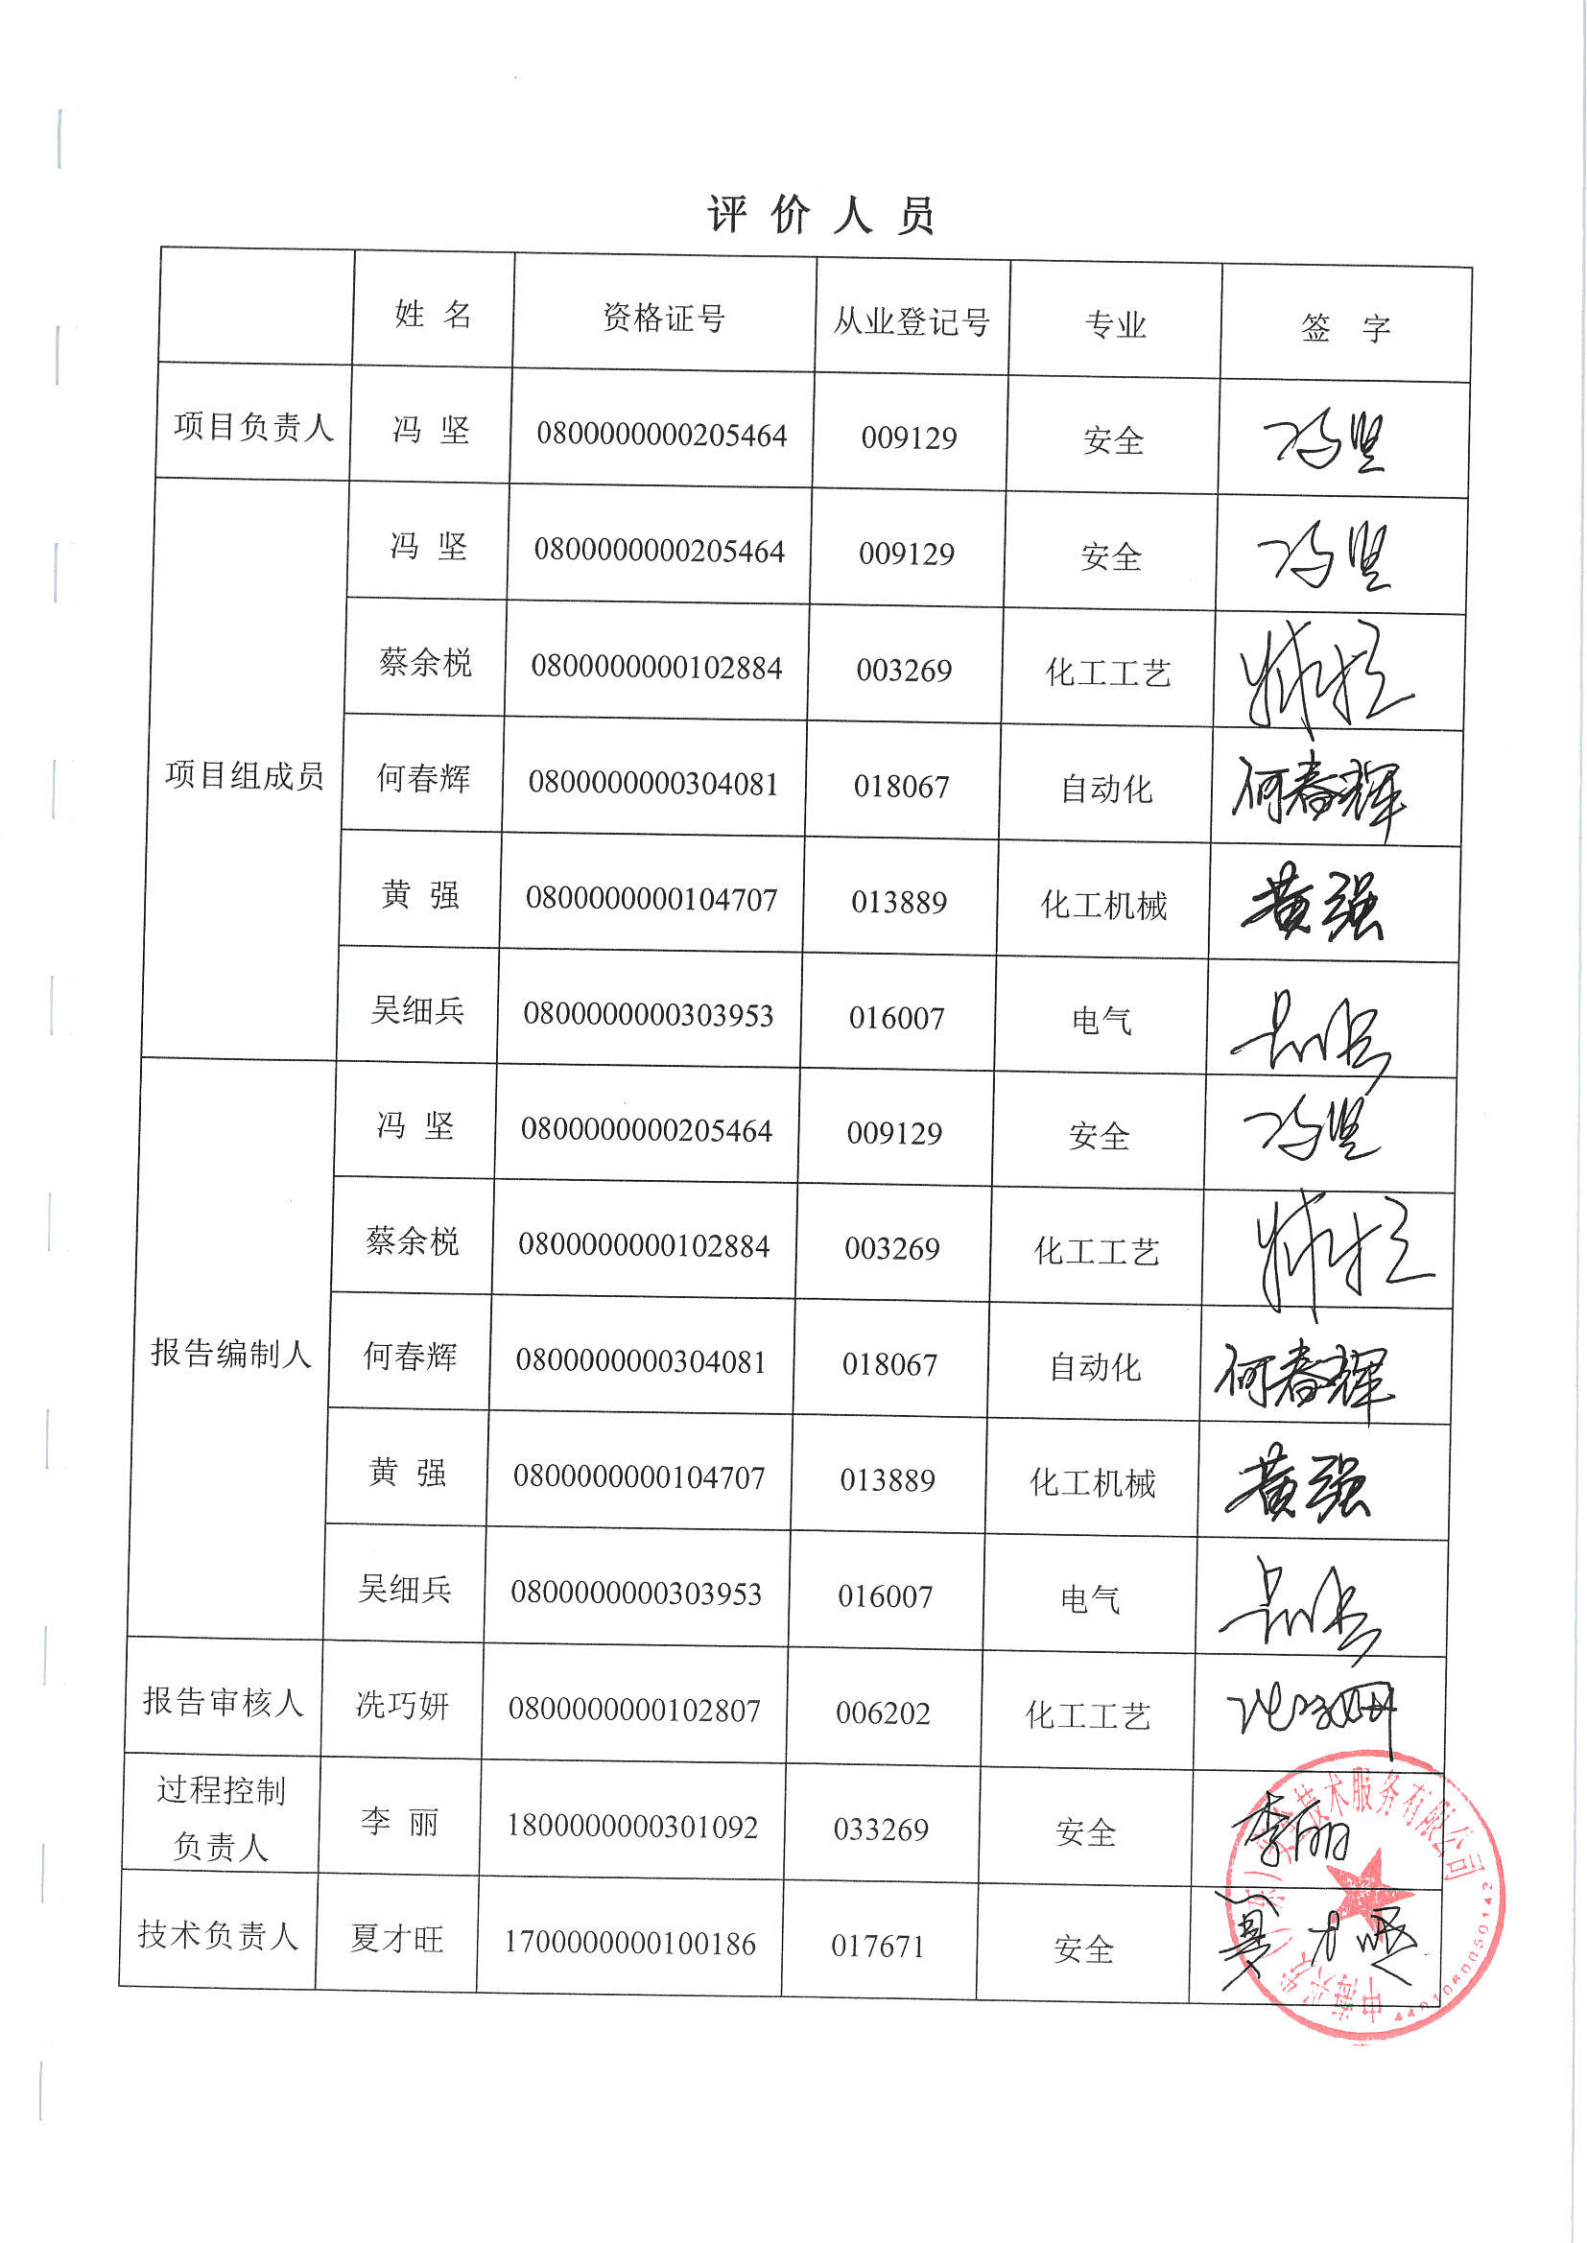 评价人员
姓名 资格证号 从业登记号 专业 签字
项目负责人 冯坚 0800000000205464 009129 安全 冯坚
项目组成员 冯坚 0800000000205464 009129 安全 冯坚
蔡余棁 0800000000102884 003269 化工工艺
何春辉 0800000000304081 018067 自动化 何春辉
黄强 0800000000104707 013889 化工机械 黄强
吴细兵 0800000000303953 016007 电气 吴细兵
报告编制人 冯坚 0800000000205464 009129 安全 冯坚
蔡余棁 0800000000102884 003269 化工工艺
何春辉 0800000000304081 018067 自动化 何春辉
黄强 0800000000104707 013889 化工机械 黄强
吴细兵 0800000000303953 016007 电气 吴细兵
报告审核人 冼巧妍 0800000000102807 006202 化工工艺 冼巧妍
过程控制
负责人 李丽 1800000000301092 033269 安全 李丽
技术负责人 夏才旺 1700000000100186 017671 安全 夏才旺
技术服务有限公司